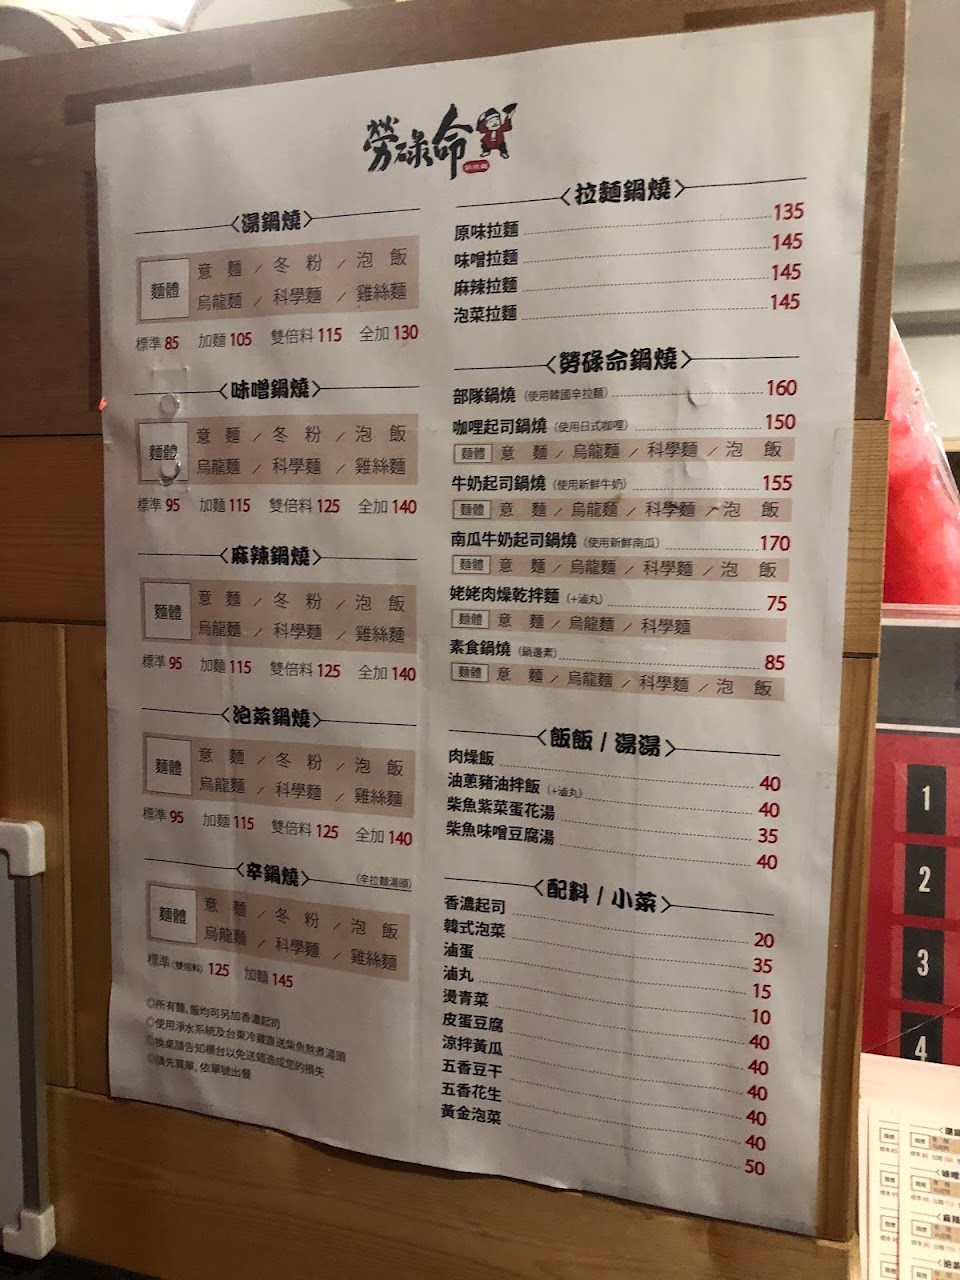 勞碌命
鍋燒麵
〈湯鍋燒〉
麵體
意 麵 / 冬 粉 / 泡 飯
烏龍麵 / 科學麵 / 雞絲麵
標準 85 加麵 105 雙倍料 115 全加 130
〈味噌鍋燒〉
麵體
意 麵 / 冬 粉 / 泡 飯
烏龍麵 / 科學麵 / 雞絲麵
標準 95 加麵 115 雙倍料 125 全加 140
〈麻辣鍋燒〉
麵體
意 麵 / 冬 粉 / 泡 飯
烏龍麵 / 科學麵 / 雞絲麵
標準 95 加麵 115 雙倍料 125 全加 140
〈泡菜鍋燒〉
麵體
意 麵 / 冬 粉 / 泡 飯
烏龍麵 / 科學麵 / 雞絲麵
標準 95 加麵 115 雙倍料 125 全加 140
〈辛鍋燒〉 (辛拉麵湯頭)
麵體
意 麵 / 冬 粉 / 泡 飯
烏龍麵 / 科學麵 / 雞絲麵
標準(雙倍料) 125 加麵 145
◎所有麵、飯均可另加香濃起司
◎使用淨水系統及台東冷藏直送柴魚熬煮湯頭
◎換桌請告知櫃台以免送錯造成您的損失
◎請先買單，依單號出餐
〈拉麵鍋燒〉
原味拉麵 135
味噌拉麵 145
麻辣拉麵 145
泡菜拉麵 145
〈勞碌命鍋燒〉
部隊鍋燒 (使用韓國辛拉麵) 160
咖哩起司鍋燒 (使用日式咖哩) 150
麵體 意 麵 / 烏龍麵 / 科學麵 / 泡 飯
牛奶起司鍋燒 (使用新鮮牛奶) 155
麵體 意 麵 / 烏龍麵 / 科學麵 / 泡 飯
南瓜牛奶起司鍋燒 (使用新鮮南瓜) 170
麵體 意 麵 / 烏龍麵 / 科學麵 / 泡 飯
姥姥肉燥乾拌麵 (+滷丸) 75
麵體 意 麵 / 烏龍麵 / 科學麵
素食鍋燒 (鍋邊素) 85
麵體 意 麵 / 烏龍麵 / 科學麵 / 泡 飯
〈飯飯 / 湯湯〉
肉燥飯 40
油蔥豬油拌飯 (+滷丸) 40
柴魚紫菜蛋花湯 35
柴魚味噌豆腐湯 40
〈配料 / 小菜〉
香濃起司 20
韓式泡菜 35
滷蛋 15
滷丸 10
燙青菜 40
皮蛋豆腐 40
涼拌黃瓜 40
五香豆干 40
五香花生 40
黃金泡菜 50
1
2
3
4